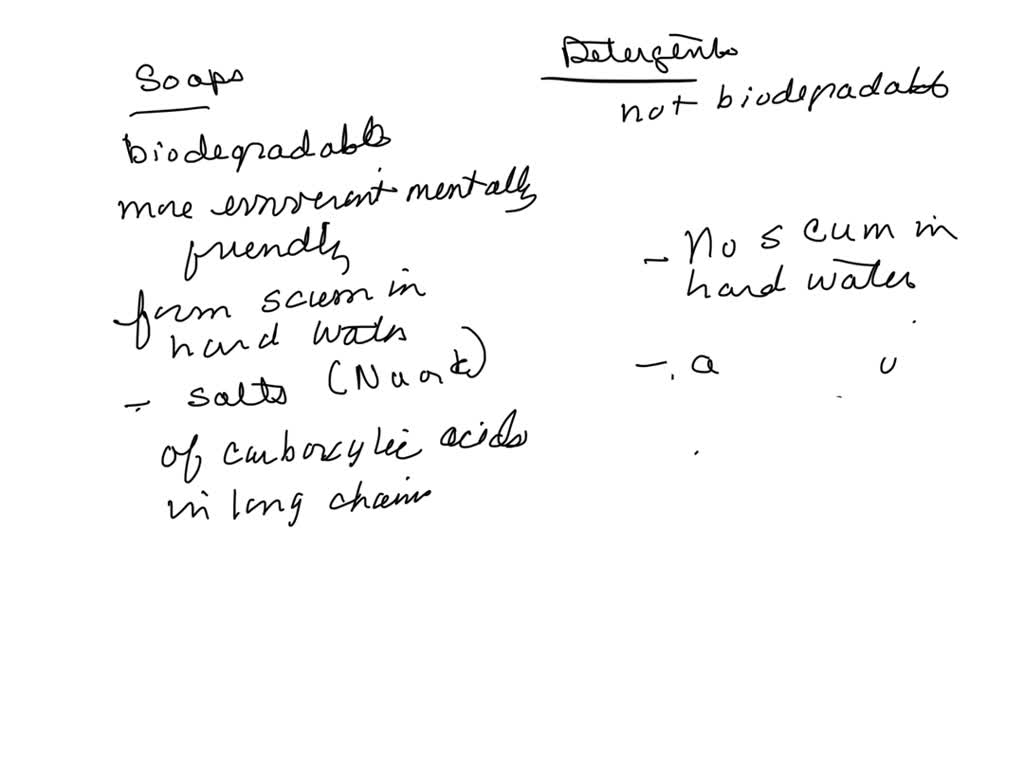 Soaps
biodegradable
more environmentally
friendly
form scum in
hard water
- salts (Na or K)
of carboxylic acids
in long chains
Detergents
not biodegradable
- No scum in
hard water
- a